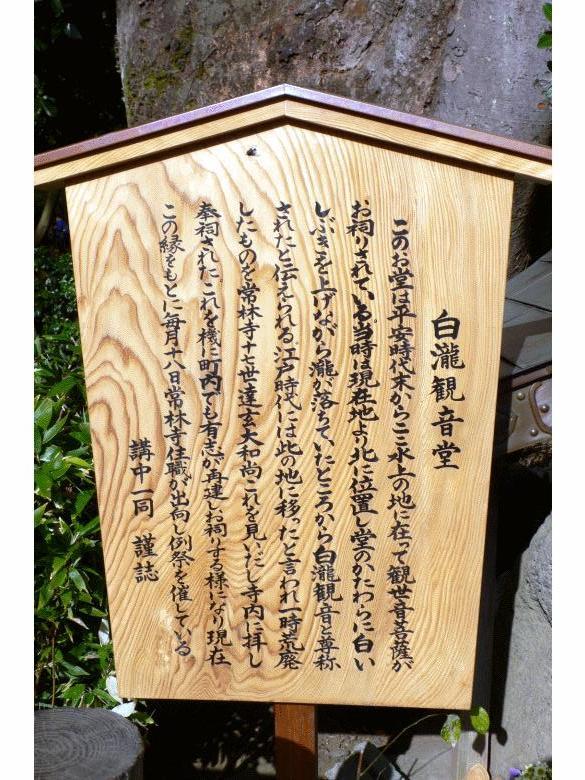 白瀧観音堂
このお堂は平安時代末からここ氷上の地に在って観世音菩薩が
お祠りされている当時は現在地より北に位置し堂のかたわらに白い
しぶきを上げながら瀧が落ちていたところから白瀧観音と尊称
されたと伝えられる江戸時代には此の地に移ったと言われ一時荒廃
したものを常林寺十七世達玄大和尚これを見いだし寺内に拝し
奉祠されたこれを機に町内でも有志が再建しお祠りする様になり現在
この縁をもとに毎月十八日常林寺住職が出向し例祭を催している
講中一同 謹誌